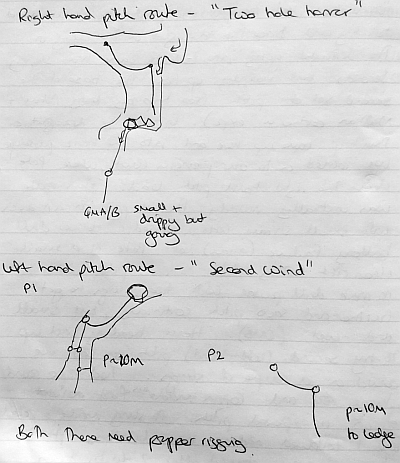 Right hand pitch route - "Two hole horror"
QMA/B small +
drippy but
going
Left hand pitch route - "Second Wind"
P1
P~20m
P2
P~10m
to ledge
Both There need proper rigging.